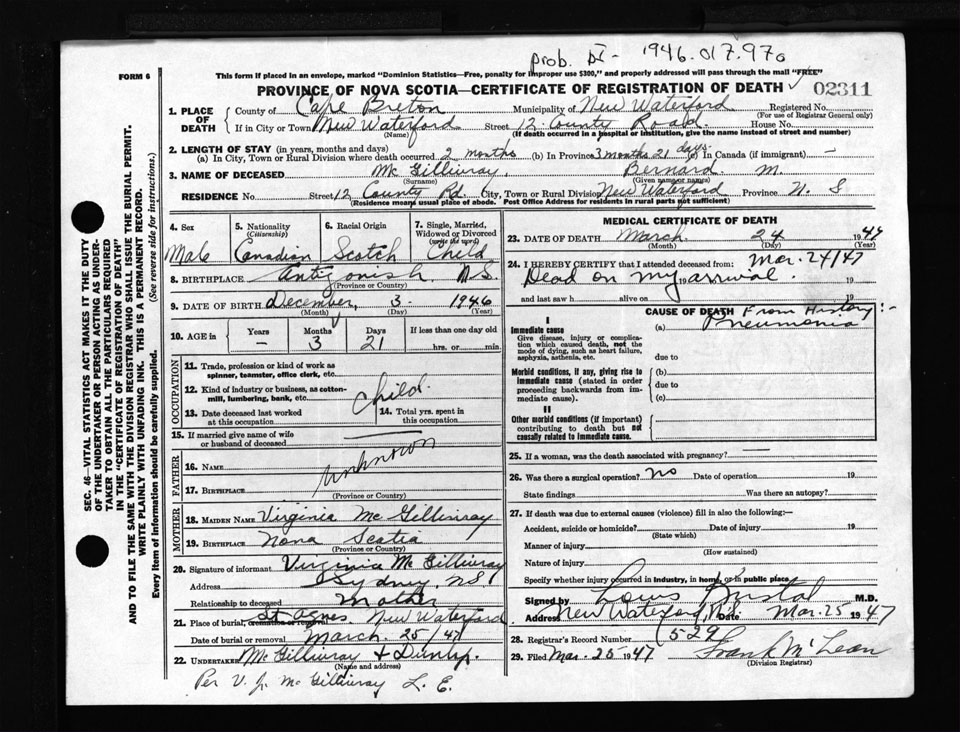 prob. 1946.017.970
FORM 6
This form if placed in an envelope, marked "Dominion Statistics—Free, penalty for improper use $300," and properly addressed will pass through the mail "FREE"
PROVINCE OF NOVA SCOTIA—CERTIFICATE OF REGISTRATION OF DEATH 02311
1. PLACE OF DEATH County of Cape Breton Municipality of New Waterford Registered No.
(For use of Registrar General only)
If in City or Town New Waterford Street 12 County Road House No.
(Name) (If death occurred in a hospital or institution, give the name instead of street and number)
2. LENGTH OF STAY (in years, months and days)
(a) In City, Town or Rural Division where death occurred 2 months (b) In Province 3 months 21 days (c) In Canada (if immigrant) —
3. NAME OF DECEASED Mc Gillivray, Bernard M.
(Surname) (Given name or names)
RESIDENCE No. Street 12 County Rd. City, Town or Rural Division New Waterford Province N. S
(Residence means usual place of abode. Post Office Address for residents in rural parts not sufficient)
4. Sex Male
5. Nationality (Citizenship) Canadian
6. Racial Origin Scotch
7. Single, Married, Widowed or Divorced (write the word) Child
8. BIRTHPLACE Antigonish N.S.
(Province or Country)
9. DATE OF BIRTH December, 3. 1946
(Month) (Day) (Year)
10. AGE in Years — Months 3 Days 21 If less than one day old hrs. or min.
OCCUPATION
11. Trade, profession or kind of work as spinner, teamster, office clerk, etc.
12. Kind of industry or business, as cotton-mill, lumbering, bank, etc. Child
13. Date deceased last worked at this occupation
14. Total yrs. spent in this occupation
15. If married give name of wife or husband of deceased —
FATHER
16. Name Unknown
17. BIRTHPLACE
(Province or Country)
MOTHER
18. MAIDEN NAME Virginia Mc Gillivray
19. BIRTHPLACE Nova Scotia
(Province or Country)
20. Signature of informant Virginia Mc Gillivray
Address Sydney, N.S.
Relationship to deceased Mother
21. Place of burial, cremation or removal St Agnes New Waterford
Date of burial or removal March 25/47
22. UNDERTAKER Mc Gillivray & Dunlop.
(Name and address)
Per V. J. Mc Gillivray L. E.
MEDICAL CERTIFICATE OF DEATH
23. DATE OF DEATH March 24 1947
(Month) (Day) (Year)
24. I HEREBY CERTIFY that I attended deceased from: Mar. 24/47
Dead on my arrival. 19 19
and last saw h alive on 19
CAUSE OF DEATH From History:-
I
Immediate cause (a) Pneumonia
Give disease, injury or complication which caused death, not the mode of dying, such as heart failure, asphyxia, asthenia, etc.
due to
Morbid conditions, if any, giving rise to immediate cause (stated in order proceeding backwards from immediate cause).
(b)
due to
(c)
II
Other morbid conditions (if important) contributing to death but not causally related to immediate cause.
25. If a woman, was the death associated with pregnancy? —
26. Was there a surgical operation? no Date of operation 19
State findings Was there an autopsy?
27. If death was due to external causes (violence) fill in also the following:—
Accident, suicide or homicide? Date of injury 19
(State which)
Manner of injury
(How sustained)
Nature of injury
Specify whether injury occurred in industry, in home, or in public place
Signed by Louis M.D.
Address New Waterford, N.S. Date Mar. 25 1947
28. Registrar's Record Number (529)
29. Filed Mar. 25 1947 Frank McLean
(Division Registrar)
SEC. 46—VITAL STATISTICS ACT MAKES IT THE DUTY
OF THE UNDERTAKER OR PERSON ACTING AS UNDERTAKER
TO OBTAIN ALL THE PARTICULARS REQUIRED
IN THE "CERTIFICATE OF REGISTRATION OF DEATH"
AND TO FILE THE SAME WITH THE DIVISION REGISTRAR WHO SHALL ISSUE THE BURIAL PERMIT.
WRITE PLAINLY WITH UNFADING INK. THIS IS A PERMANENT RECORD.
Every item of information should be carefully supplied. (See reverse side for instructions.)